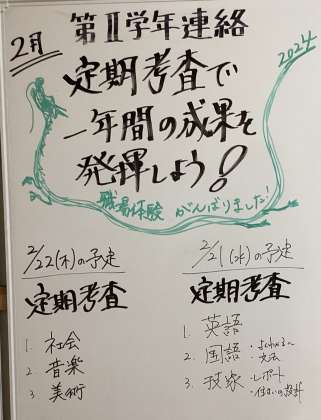 2月
第Ⅱ学年連絡
2024
定期考査で
一年間の成果を
発揮しよう!
職場体験 がんばりました!
2/22(木)の予定
定期考査
1. 社会
2. 音楽
3. 美術
2/21(水)の予定
定期考査
1. 英語
2. 国語
・文法
3. 技家
・レポート
・住まいの設計